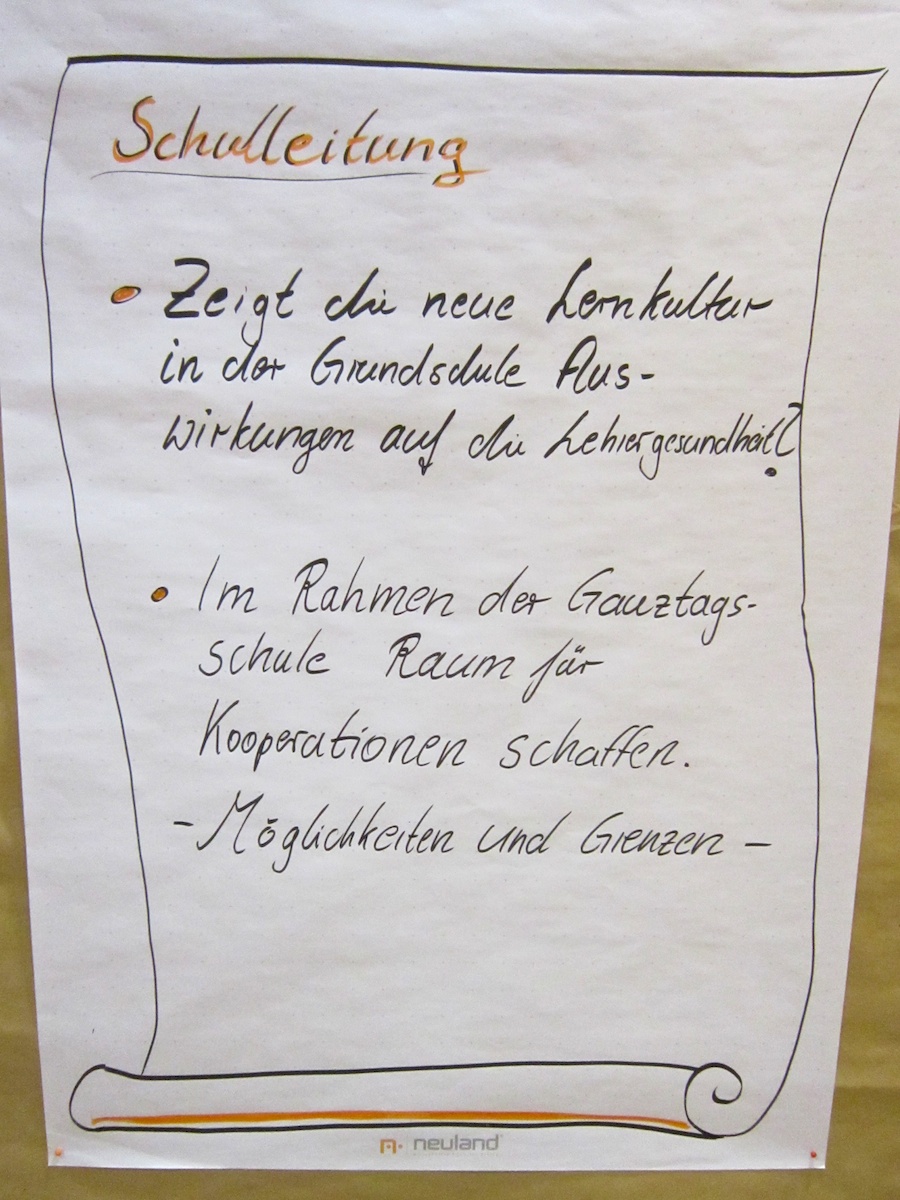 Schulleitung
Zeigt die neue Lernkultur
in der Grundschule Aus-
wirkungen auf die Lehrergesundheit?
Im Rahmen der Ganztags-
schule Raum für
Kooperationen schaffen.
- Möglichkeiten und Grenzen -
neuland